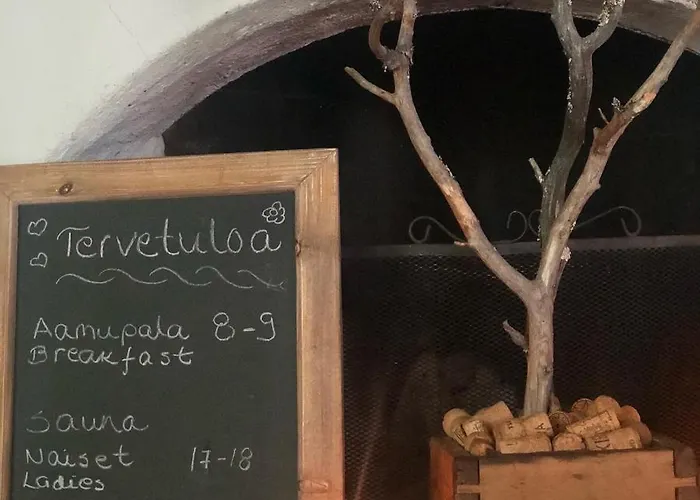 Tervetuloa
Aamupala 8-9
Breakfast
Sauna
Naiset 17-18
Ladies